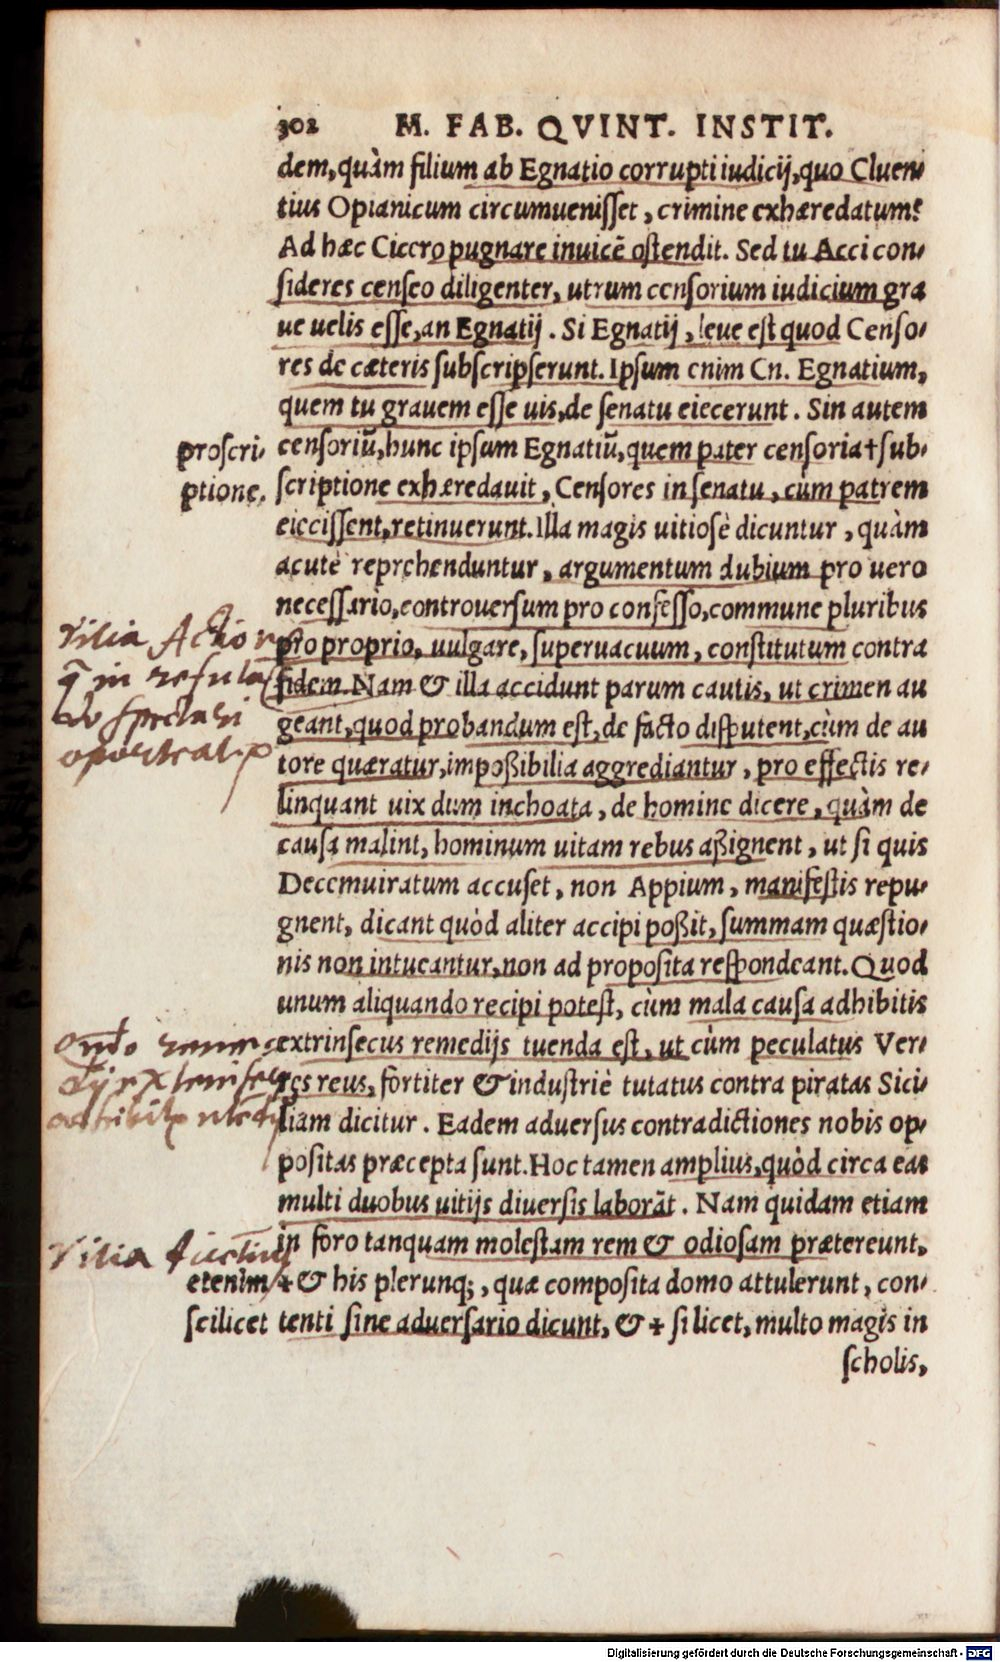 302 M. FAB. QVINT. INSTIT.
dem, quàm filium ab Egnatio corrupti iudicij, quo Cluen-
tius Opianicum circumuenisset, crimine exhæredatum?
Ad hæc Cicero pugnare inuicē ostendit. Sed tu Acci con-
sideres censeo diligenter, utrum censorium iudicium gra
ue uelis esse, an Egnatij. Si Egnatij, leue est quod Censo-
res de cæteris subscripserunt. Ipsum enim Cn. Egnatium,
quem tu grauem esse uis, de senatu eiecerunt. Sin autem
proscri- censoriū, hunc ipsum Egnatiū, quem pater censoria † sub-
ptione. scriptione exhæredauit, Censores in senatu, cùm patrem
eiecissent, retinuerunt. Illa magis uitiosè dicuntur, quàm
acutè reprehenduntur, argumentum dubium pro uero
necessario, controuersum pro confesso, commune pluribus
pro proprio, uulgare, superuacuum, constitutum contra
fidem. Nam & illa accidunt parum cautis, ut crimen au
geant, quod probandum est, de facto disputent, cùm de au
tore quæratur, impoßibilia aggrediantur, pro effectis re-
linquant uix dum inchoata, de homine dicere, quàm de
causa malint, hominum uitam rebus aßignent, ut si quis
Decemuiratum accuset, non Appium, manifestis repu-
gnent, dicant quòd aliter accipi poßit, summam quæstio-
nis non intueantur, non ad proposita respondeant. Quod
unum aliquando recipi potest, cùm mala causa adhibitis
extrinsecus remedijs tuenda est, ut cùm peculatus Ver-
res reus, fortiter & industriè tutatus contra piratas Sici-
liam dicitur. Eadem aduersus contradictiones nobis op-
positas præcepta sunt. Hoc tamen amplius, quòd circa eas
multi duobus uitijs diuersis laborāt. Nam quidam etiam
in foro tanquam molestam rem & odiosam prætereunt,
etenim + & his plerunq;, quæ composita domo attulerunt, con-
scilicet tenti sine aduersario dicunt, & + si licet, multo magis in
scholis,
Vitia
in
Vitia
Digitalisierung gefördert durch die Deutsche Forschungsgemeinschaft - DFG